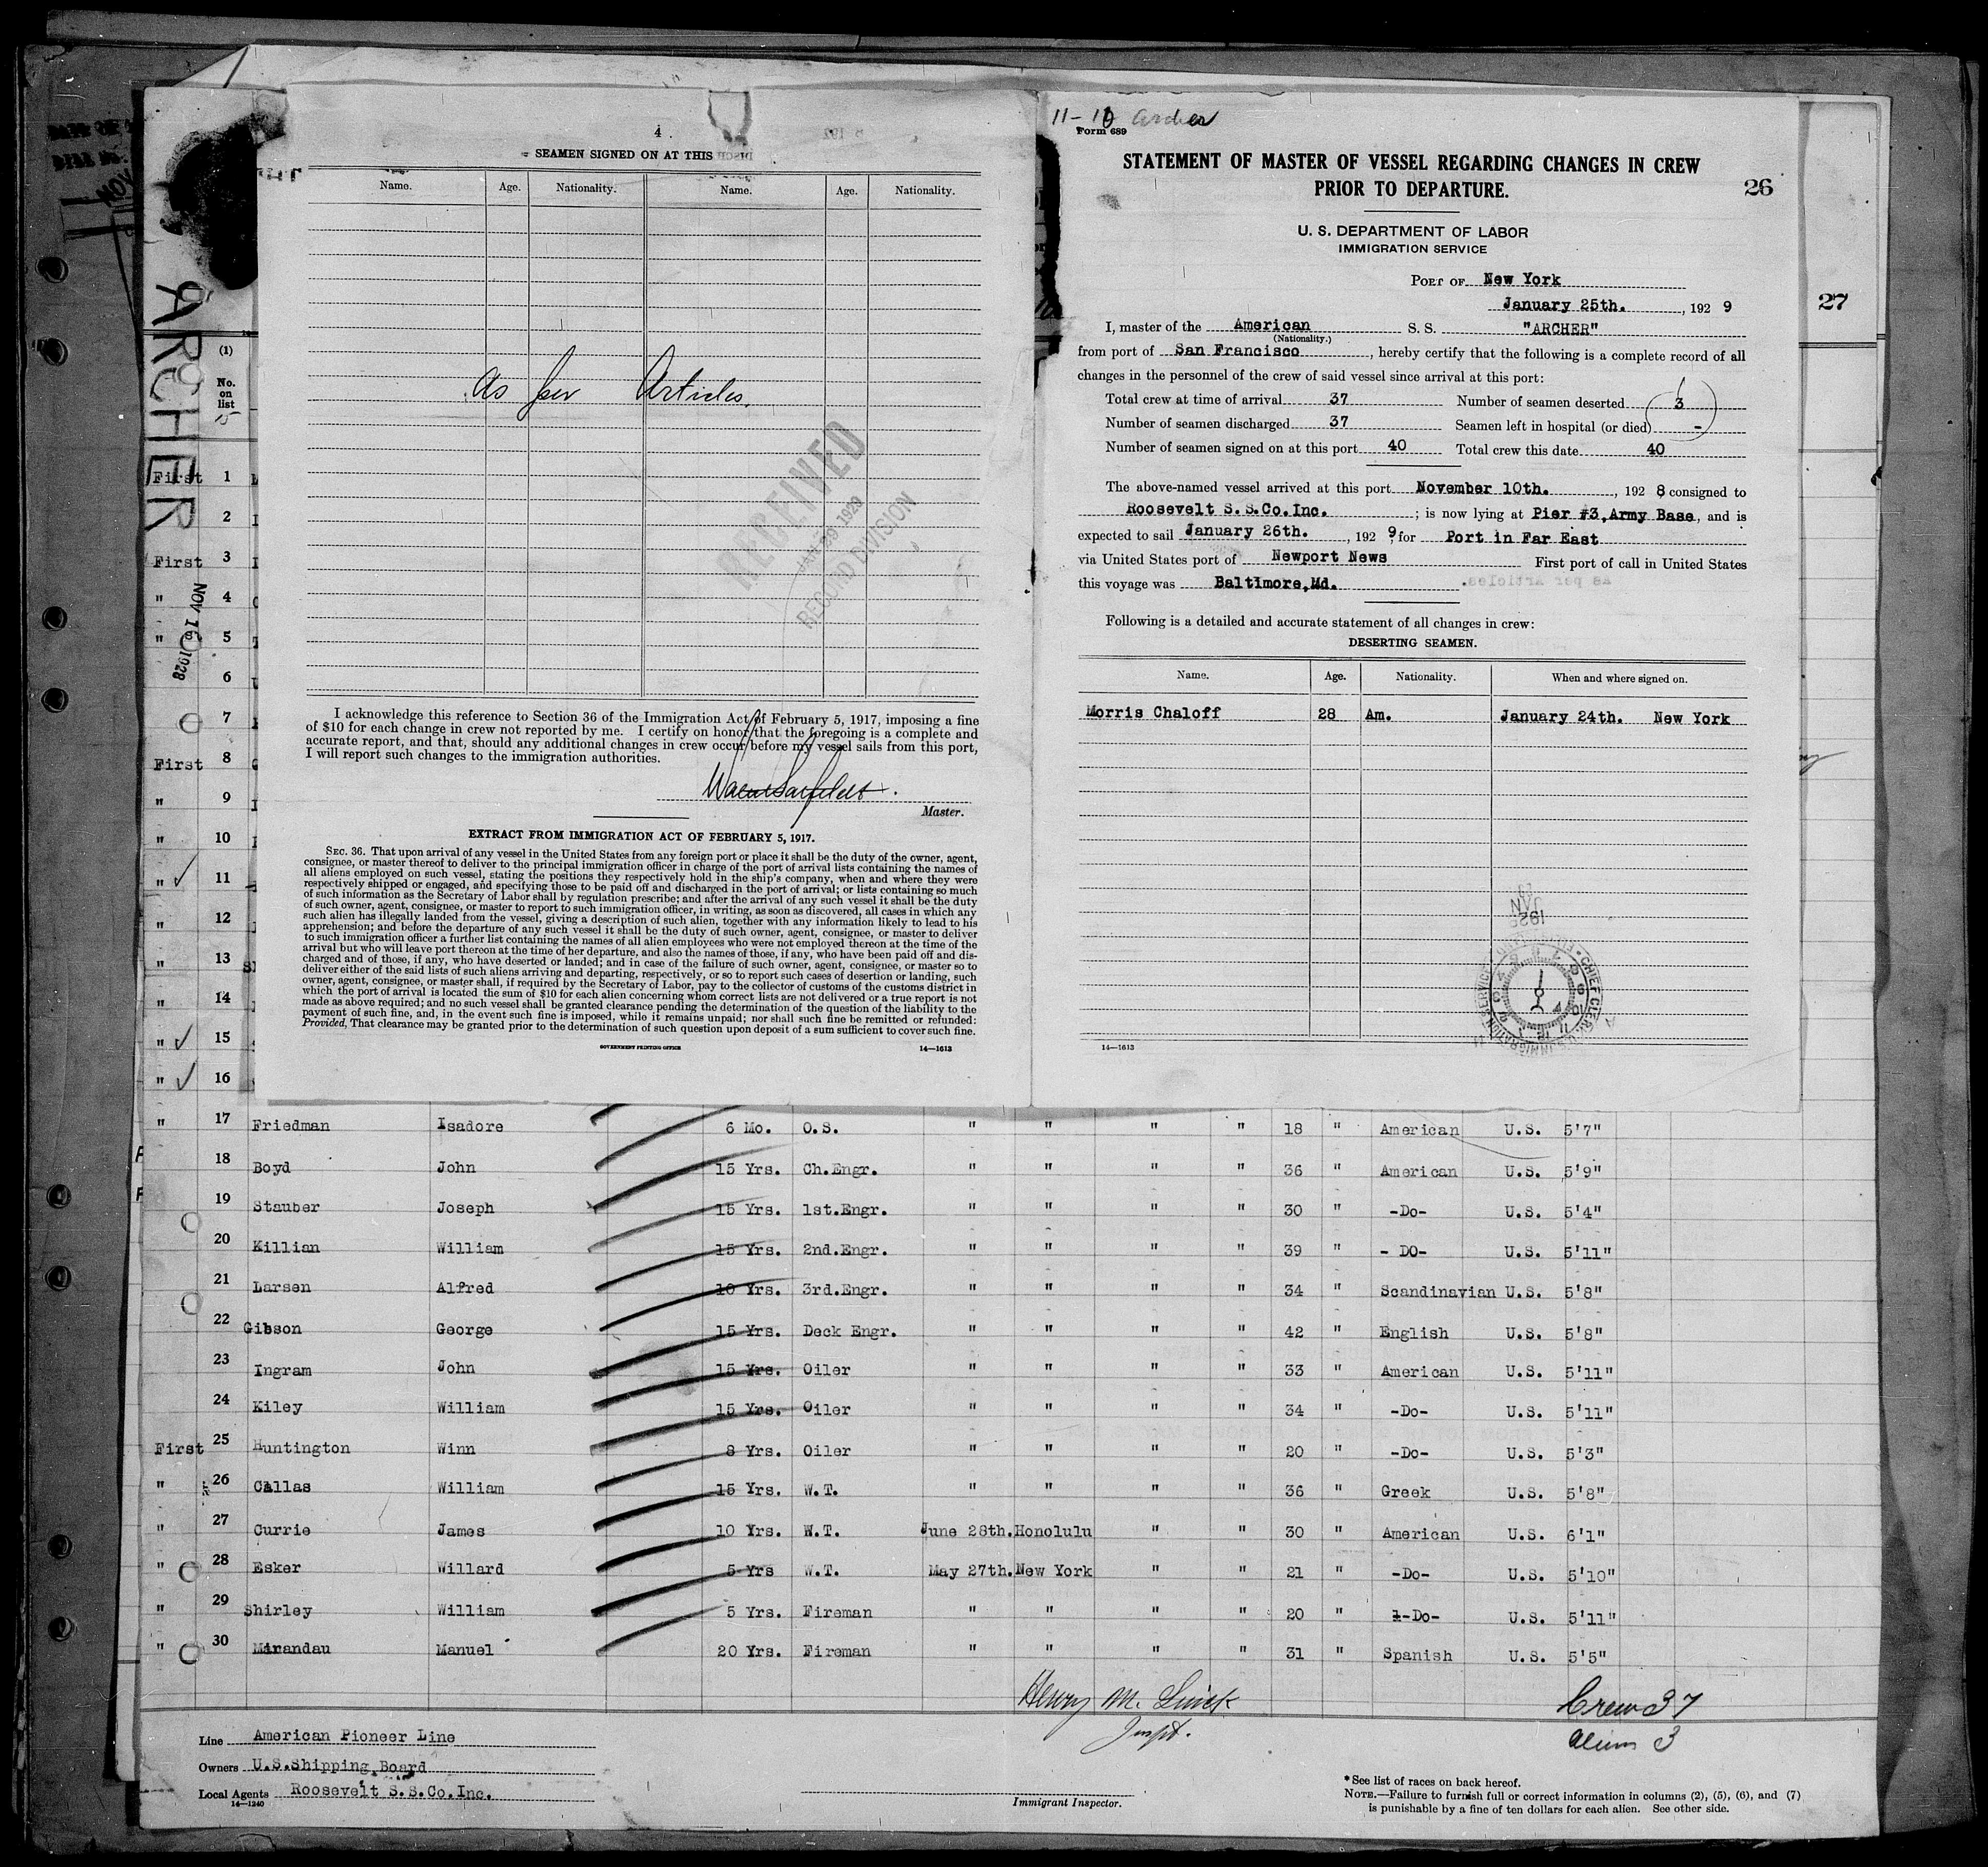 4
SEAMEN SIGNED ON AT THIS
Name. Age. Nationality. Name. Age. Nationality.
As per Articles.
RECEIVED
JAN 29 1929
RECORD DIVISION
I acknowledge this reference to Section 36 of the Immigration Act of February 5, 1917, imposing a fine
of $10 for each change in crew not reported by me. I certify on honor that the foregoing is a complete and
accurate report, and that, should any additional changes in crew occur before my vessel sails from this port,
I will report such changes to the immigration authorities.
Master.
EXTRACT FROM IMMIGRATION ACT OF FEBRUARY 5, 1917.
SEC. 36. That upon arrival of any vessel in the United States from any foreign port or place it shall be the duty of the owner, agent,
consignee, or master thereof to deliver to the principal immigration officer in charge of the port of arrival lists containing the names of
all aliens employed on such vessel, stating the positions they respectively hold in the ship's company, when and where they were
respectively shipped or engaged, and specifying those to be paid off and discharged in the port of arrival; or lists containing so much
of such information as the Secretary of Labor shall by regulation prescribe; and after the arrival of any such vessel it shall be the duty
of such owner, agent, consignee, or master to report to such immigration officer, in writing, as soon as discovered, all cases in which any
such alien has illegally landed from the vessel, giving a description of such alien, together with any information likely to lead to his
apprehension; and before the departure of any such vessel it shall be the duty of such owner, agent, consignee, or master to deliver
to such immigration officer a further list containing the names of all alien employees who were not employed thereon at the time of the
arrival but who will leave port thereon at the time of her departure, and also the names of those, if any, who have been paid off and dis-
charged and of those, if any, who have deserted or landed; and in case of the failure of such owner, agent, consignee, or master so to
deliver either of the said lists of such aliens arriving and departing, respectively, or so to report such cases of desertion or landing, such
owner, agent, consignee, or master shall, if required by the Secretary of Labor, pay to the collector of customs of the customs district in
which the port of arrival is located the sum of $10 for each alien concerning whom correct lists are not delivered or a true report is not
made as above required; and no such vessel shall be granted clearance pending the determination of the question of the liability to the
payment of such fine, and, in the event such fine is imposed, while it remains unpaid; nor shall such fine be remitted or refunded:
Provided, That clearance may be granted prior to the determination of such question upon deposit of a sum sufficient to cover such fine.
GOVERNMENT PRINTING OFFICE 14—1613
11-10 Archer
Form 689
STATEMENT OF MASTER OF VESSEL REGARDING CHANGES IN CREW
PRIOR TO DEPARTURE.
26
U. S. DEPARTMENT OF LABOR
IMMIGRATION SERVICE
PORT OF New York
January 25th. , 192 9
I, master of the American S. S. "ARCHER"
(Nationality.)
from port of San Francisco , hereby certify that the following is a complete record of all
changes in the personnel of the crew of said vessel since arrival at this port:
Total crew at time of arrival 37 Number of seamen deserted 3
Number of seamen discharged 37 Seamen left in hospital (or died) -
Number of seamen signed on at this port 40 Total crew this date 40
The above-named vessel arrived at this port November 10th. , 192 8 consigned to
Roosevelt S.S.Co.Inc. ; is now lying at Pier #3,Army Base, and is
expected to sail January 26th. , 192 9, for Port in Far East
via United States port of Newport News First port of call in United States
this voyage was Baltimore,Md.
Following is a detailed and accurate statement of all changes in crew:
DESERTING SEAMEN.
Name. Age. Nationality. When and where signed on.
Morris Chaloff 28 Am. January 24th. New York
14—1613
27
ARCHER
NOV 16 1928
(1)
No.
on
list
First 1
2
First 3
" 4
" 5
6
7
First 8
" 9
" 10
" 11
" 12
" 13
" 14
" 15
" 16
" 17 Friedman Isadore 6 Mo. O.S. " " " " 18 " American U.S. 5'7"
18 Boyd John 15 Yrs. Ch.Engr. " " " " 36 " American U.S. 5'9"
19 Stauber Joseph 15 Yrs. 1st.Engr. " " " " 30 " -Do- U.S. 5'4"
20 Killian William 15 Yrs. 2nd.Engr. " " " " 39 " - DO- U.S. 5'11"
21 Larsen Alfred 10 Yrs. 3rd.Engr. " " " " 34 " Scandinavian U.S. 5'8"
22 Gibson George 15 Yrs. Deck Engr. " " " " 42 " English U.S. 5'8"
23 Ingram John 15 Yrs. Oiler " " " " 33 " American U.S. 5'11"
24 Kiley William 15 Yrs. Oiler " " " " 34 " -Do- U.S. 5'11"
First 25 Huntington Winn 8 Yrs. Oiler " " " " 20 " -Do- U.S. 5'3"
" 26 Callas William 15 Yrs. W.T. " " " " 36 " Greek U.S. 5'8"
" 27 Currie James 10 Yrs. W.T. June 28th. Honolulu " " 30 " American U.S. 6'1"
" 28 Esker Willard 5 Yrs W.T. May 27th. New York " " 21 " -Do- U.S. 5'10"
" 29 Shirley William 5 Yrs. Fireman " " " " 20 " -Do- U.S. 5'11"
" 30 Mirandau Manuel 20 Yrs. Fireman " " " " 31 " Spanish U.S. 5'5"
Henry M.
Inspt.
Crew 37
Aliens 3
Line American Pioneer Line
Owners U.S.Shipping Board
Local Agents Roosevelt S.S.Co.Inc.
14—1240
Immigrant Inspector.
*See list of races on back hereof.
NOTE.—Failure to furnish full or correct information in columns (2), (5), (6), and (7)
is punishable by a fine of ten dollars for each alien. See other side.